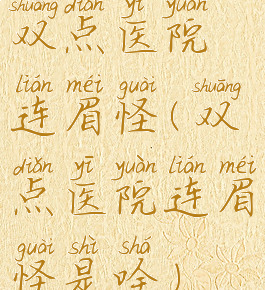 shuāng diǎn yī yuàn
双点医院
lián méi guài shuāng
连眉怪(双
diǎn yī yuàn lián méi
点医院连眉
guài shì shá
怪是啥)